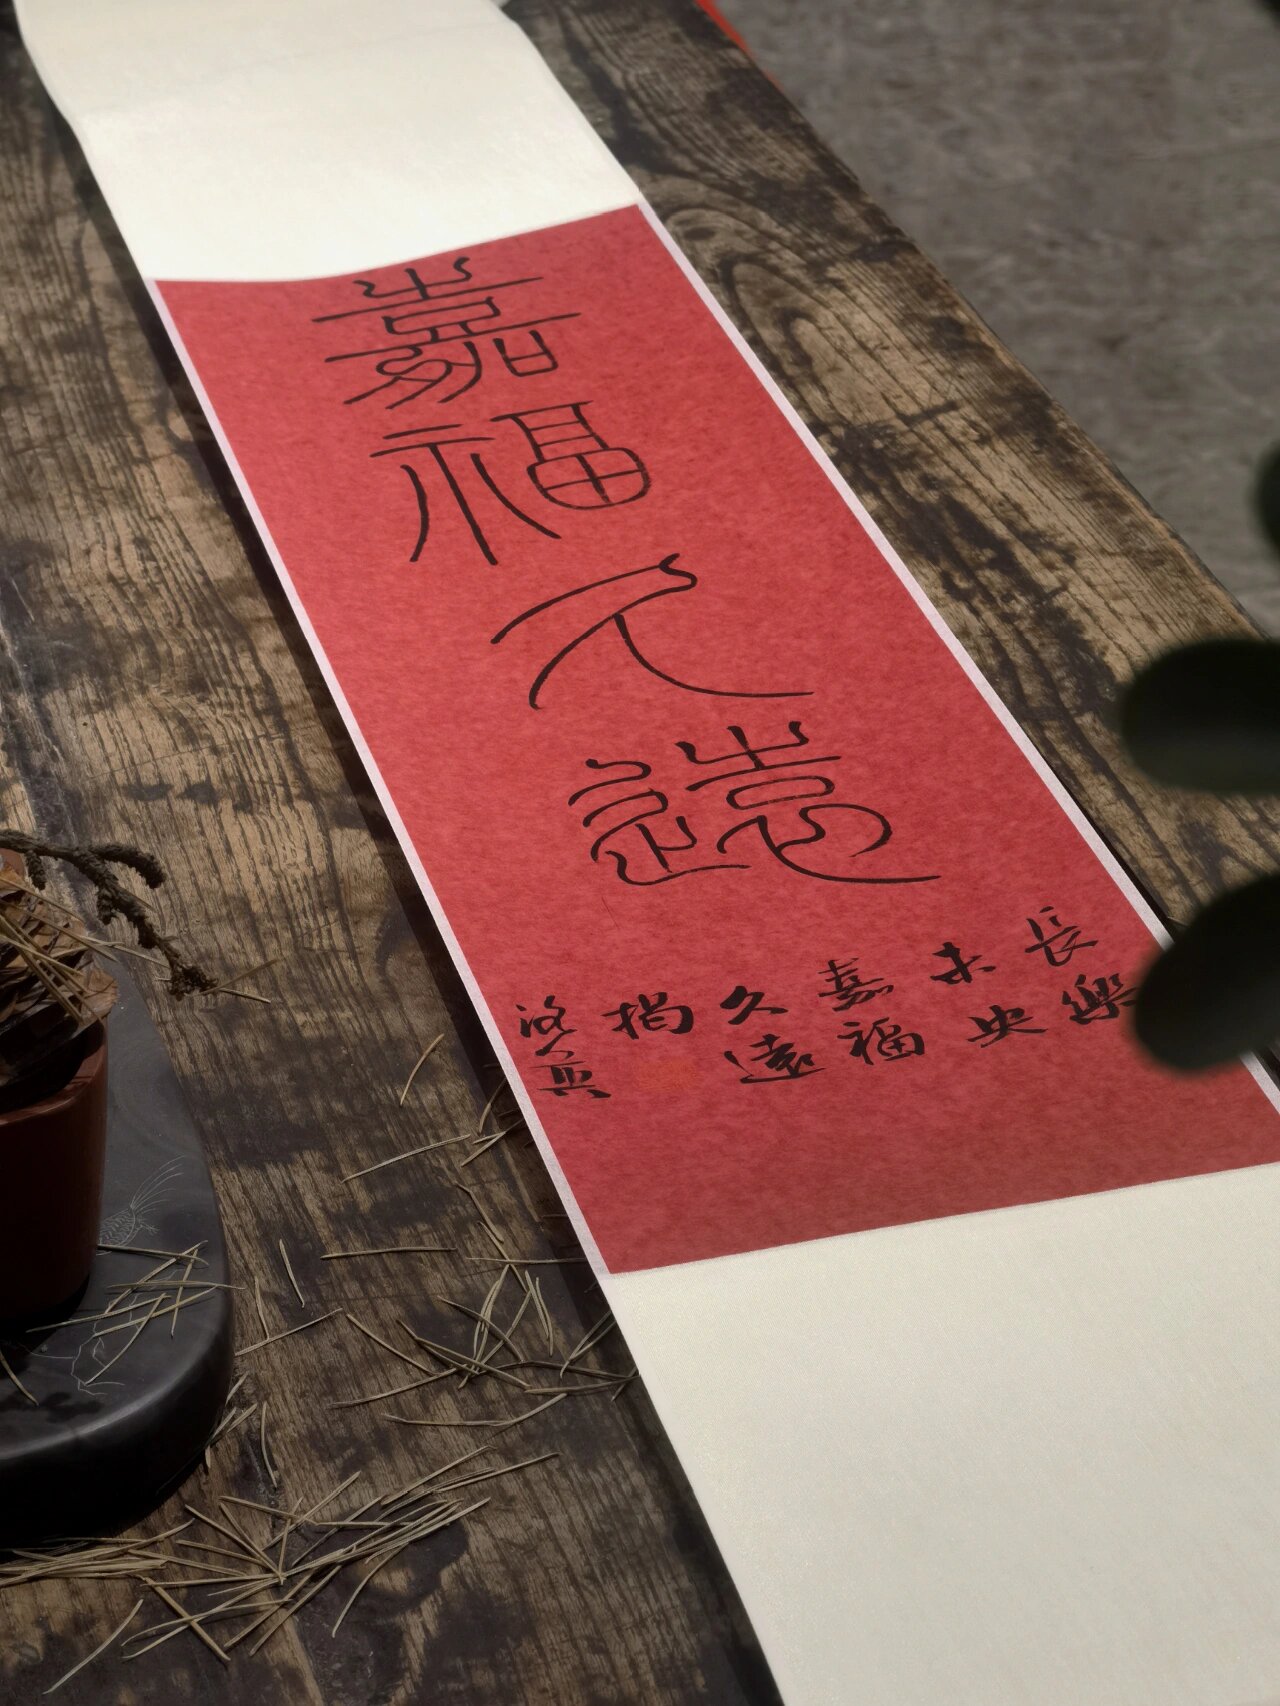 嘉福久遠
長樂
未央
嘉福
久遠